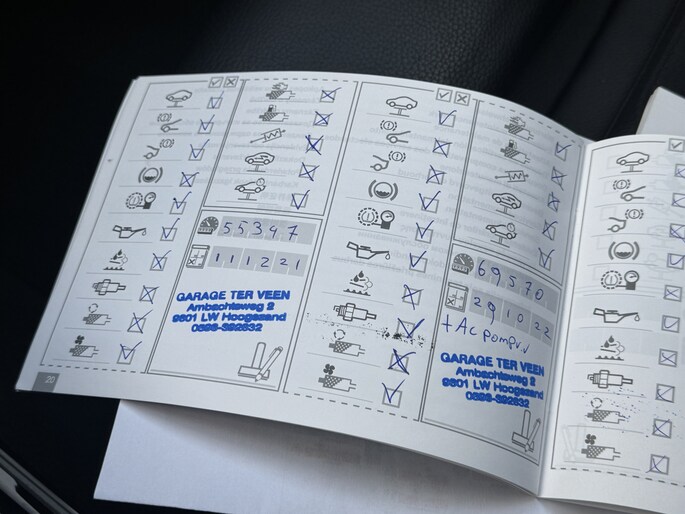 55347
111221
GARAGE TER VEEN
Ambachtsweg 2
9601 LW Hoogezand
0598-392632
20
69570
291022
GARAGE TER VEEN
Ambachtsweg 2
9601 LW Hoogezand
0598-392632